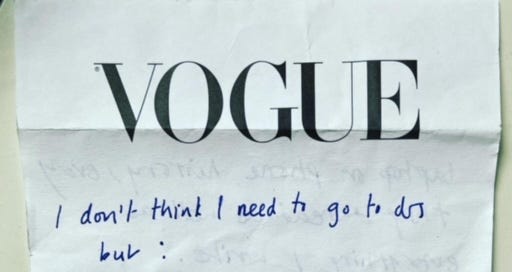 VOGUE
I don't think I need to go to drs
but :